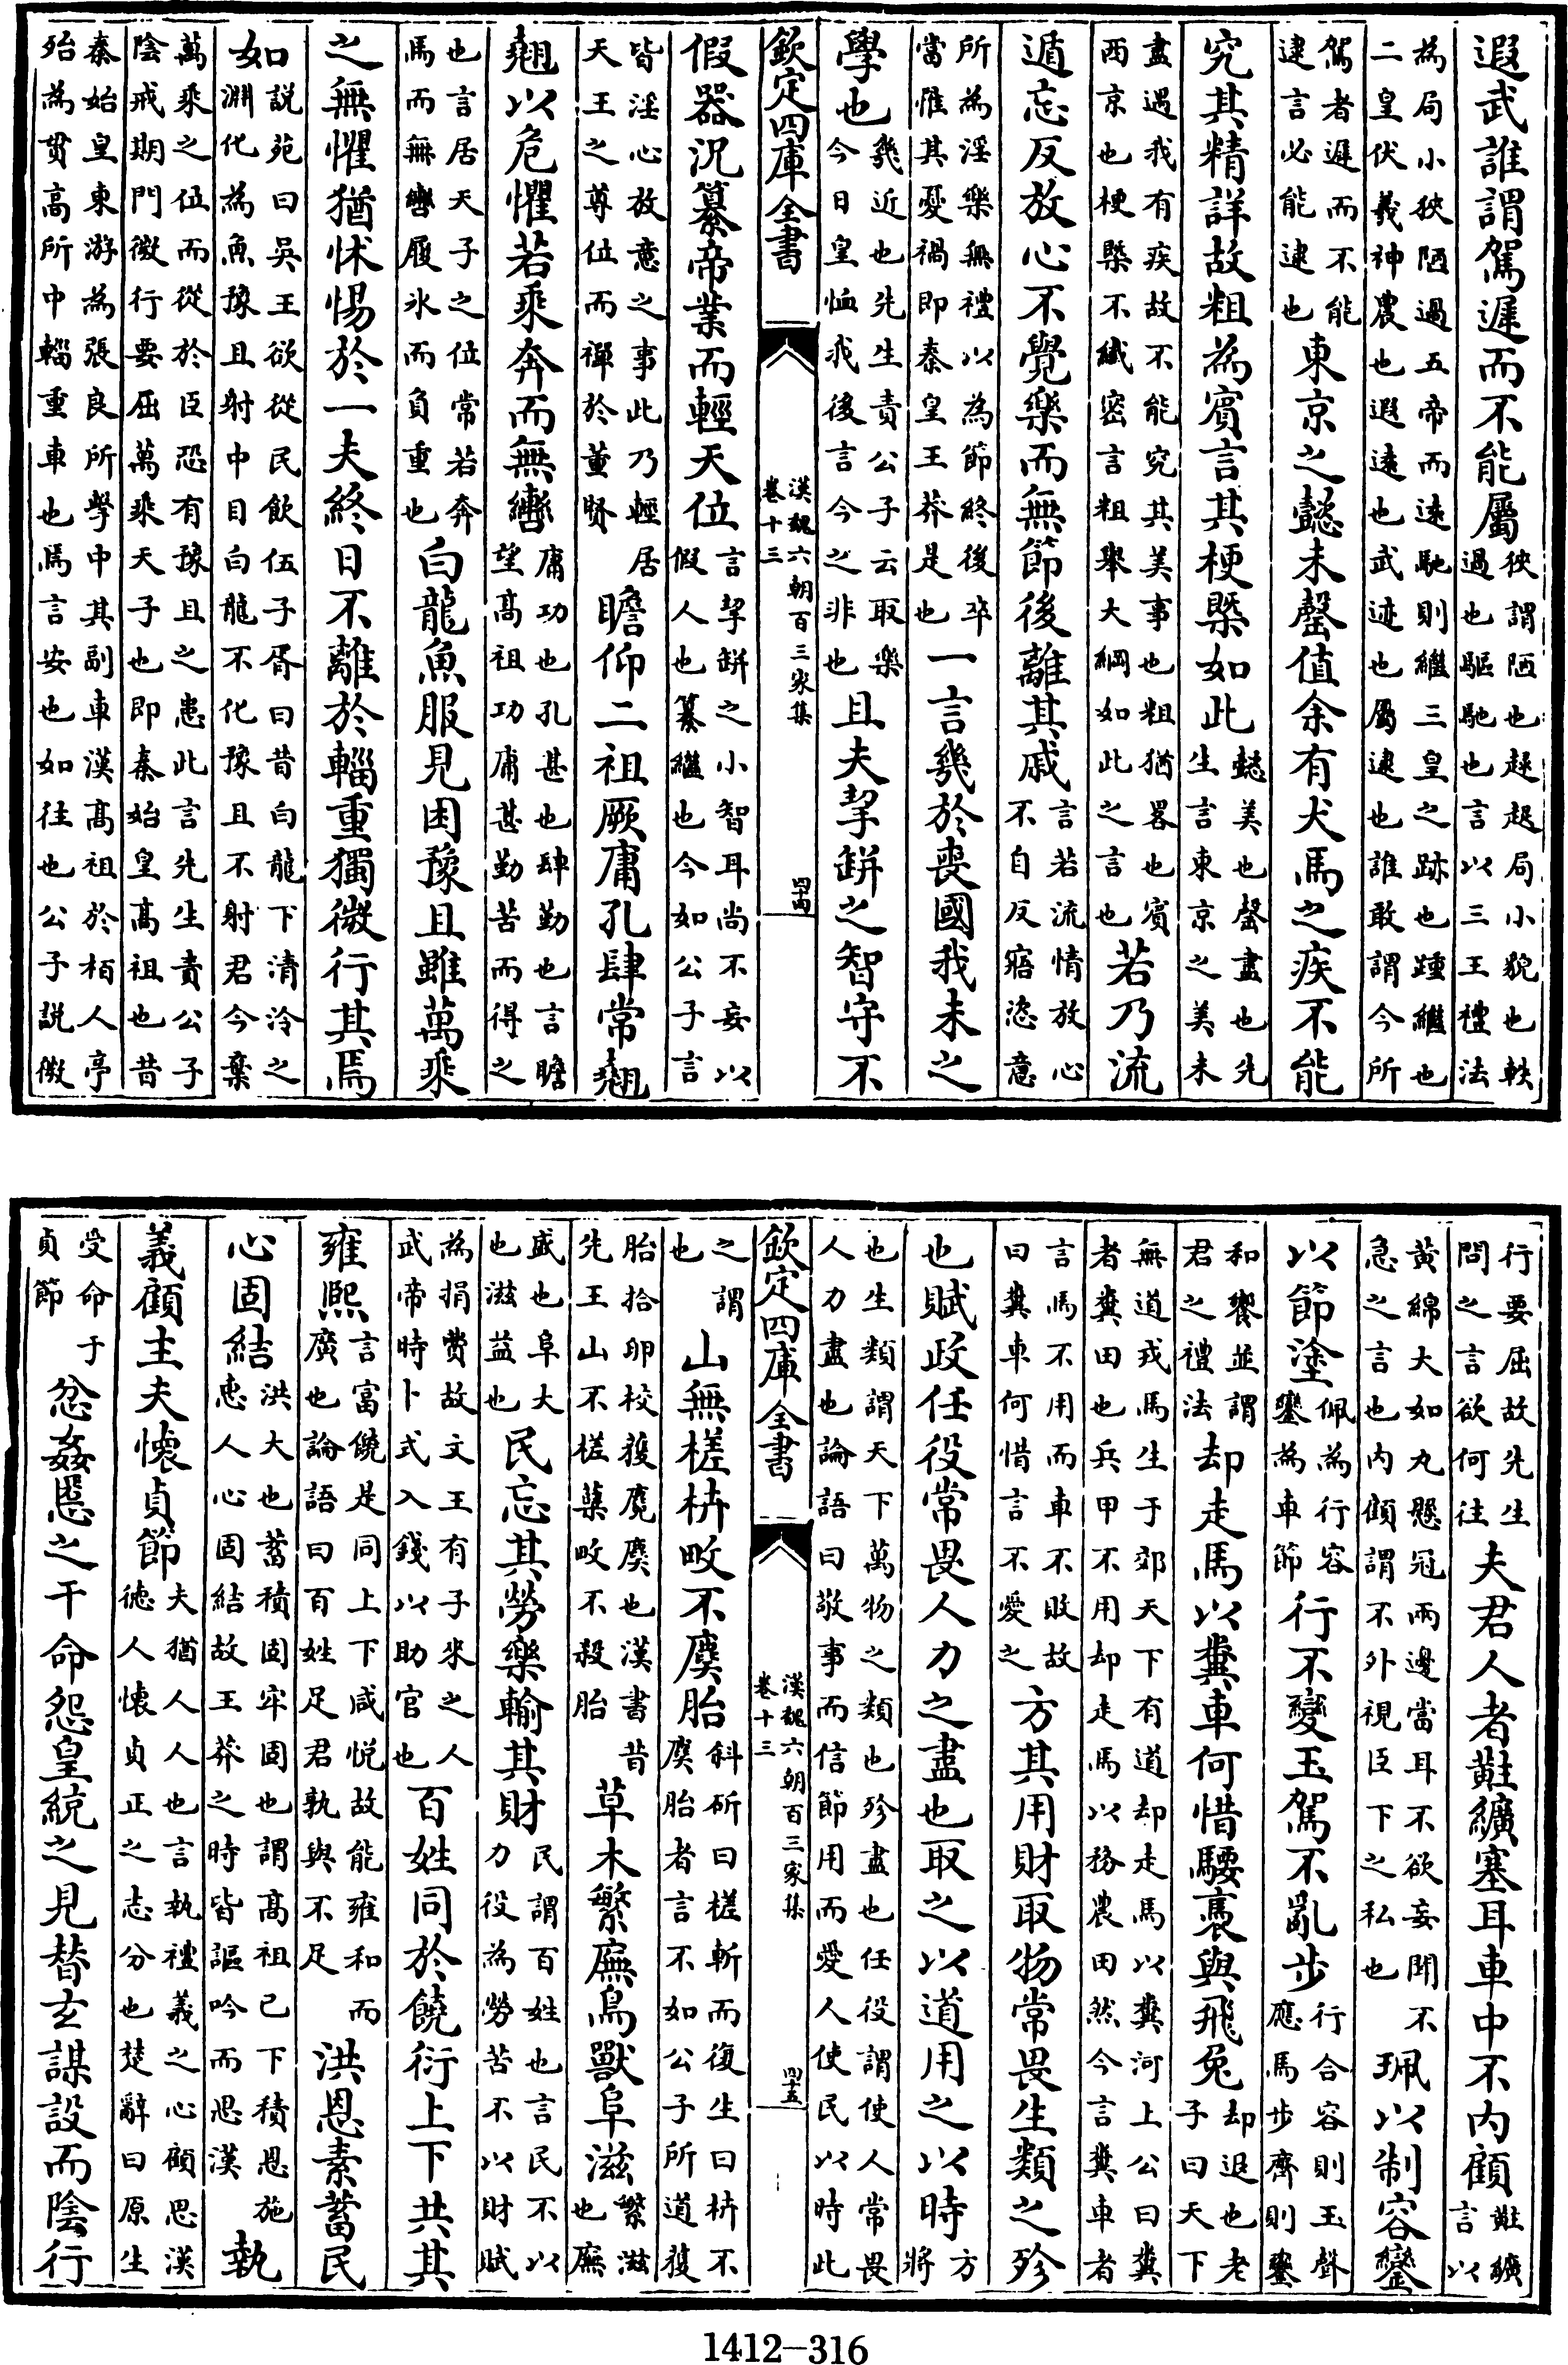 遐武誰謂駕遲而不能屬狹謂陋也起起局小貌也軼過也驅馳也言以三王禮法
為局小狹陋過五帝而遠馳則繼三皇之跡也踵繼也二皇伏羲神農也遐遠也武迹也屬逮也誰敢謂今所
駕者遲而不能逮言必能逮也東京之懿未罄值余有犬馬之疾不能
究其精詳故粗為賓言其梗槩如此懿美也罄盡也先生言東京之美未
盡過我有疾故不能究其美事也粗猶畧也賓西京也梗槩不纖密言粗舉大綱如此之言也若乃流
遁忘反放心不覺樂而無節後離其戚言若流情放心不自反寤恣意
所為淫樂無禮以為節終後卒當惟其憂禍即秦皇王莽是也一言幾於喪國我未之
學也幾近也先生責公子云取樂今日皇恤我後言今之非也且夫挈缾之智守不
欽定四庫全書
漢魏六朝百三家集
卷十三
四十四
假器況纂帝業而輕天位言挈缾之小智耳尚不妄以假人也纂繼也今如公子言
皆淫心放意之事此乃輕居天王之尊位而禪於董賢瞻仰二祖厥庸孔肆常翹
翹以危懼若乘奔而無轡庸功也孔甚也肆勤也言瞻望高祖功庸甚勤苦而得之
也言居天子之位常若奔馬而無轡履氷而負重也白龍魚服見困豫且雖萬乘
之無懼猶怵惕於一夫終日不離於輜重獨微行其焉
如說苑曰吳王欲從民飲伍子胥曰昔白龍下清泠之淵化為魚豫且射中目白龍不化豫且不射君今棄
萬乘之位而從於臣恐有豫且之患此言先生責公子陰戒期門微行要屈萬乘天子也即秦始皇高祖也昔
秦始皇東游為張良所擊中其副車漢高祖於栢人亭殆為貫高所中輜重車也焉言安也如往也公子說微
行要屈故先生問之言欲何往夫君人者黈纊塞耳車中不內顧黈纊言以
黃綿大如丸懸冠兩邊當耳不欲妄聞不急之言也內顧謂不外視臣下之私也珮以制容鑾
以節塗佩為行容鑾為車節行不變玉駕不亂步行合容則玉聲應馬步齊則鑾
和響並謂君之禮法却走馬以糞車何惜騕褭與飛兔却退也老子曰天下
無道戎馬生于郊天下有道却走馬以糞河上公曰糞者糞田也兵甲不用却走馬以務農田然今言糞車者
言馬不用而車不敗故曰糞車何惜言不愛之方其用財取物常畏生類之殄
也賦政任役常畏人力之盡也取之以道用之以時方將
也生類謂天下萬物之類也殄盡也任役謂使人常畏人力盡也論語曰敬事而信節用而愛人使民以時此
欽定四庫全書
漢魏六朝百三家集
卷十三
四十五
之謂也山無槎枿畋不麌胎斜斫曰槎斬而復生曰枿不麌胎者言不如公子所道獲
胎拾卵校獲麑麌也漢書昔先王山不槎蘖畋不殺胎草木繁廡鳥獸阜滋繁滋也廡
盛也阜大也滋益也民忘其勞樂輸其財民謂百姓也言民不以力役為勞苦不以財賦
為捐費故文王有子來之人武帝時卜式入錢以助官也百姓同於饒衍上下共其
雍熙言富饒是同上下咸悅故能雍和而廣也論語曰百姓足君孰與不足洪恩素蓄民
心固結洪大也蓄積固牢固也謂高祖已下積恩施恵人心固結故王莽之時皆謳吟而思漢執
義顧主夫懷貞節夫猶人人也言執禮義之心顧思漢德人懷貞正之志分也楚辭曰原生
受命于貞節忿姦慝之干命怨皇統之見替玄謀設而陰行
1412-316